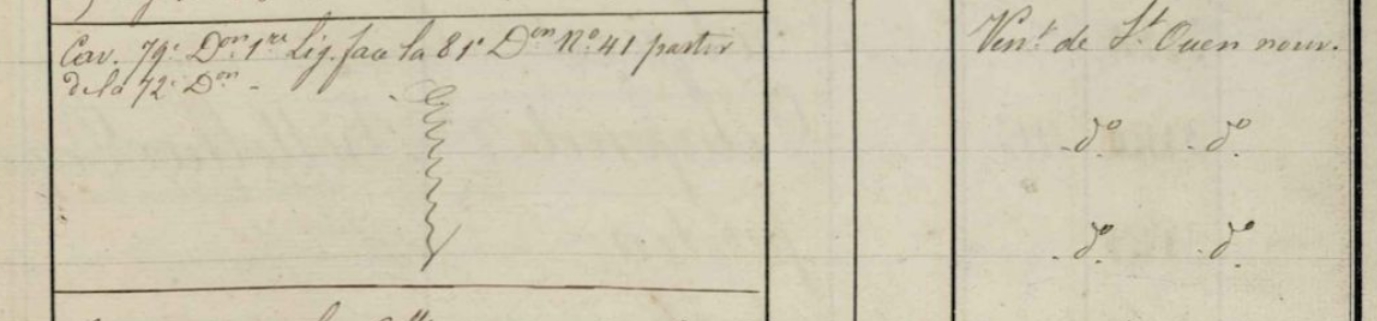 Cav. 79e Don 1re Lig. face la 81e Don No 41 partir
de la 72e Don -
Vent de St Ouen nouv.
do do
do do